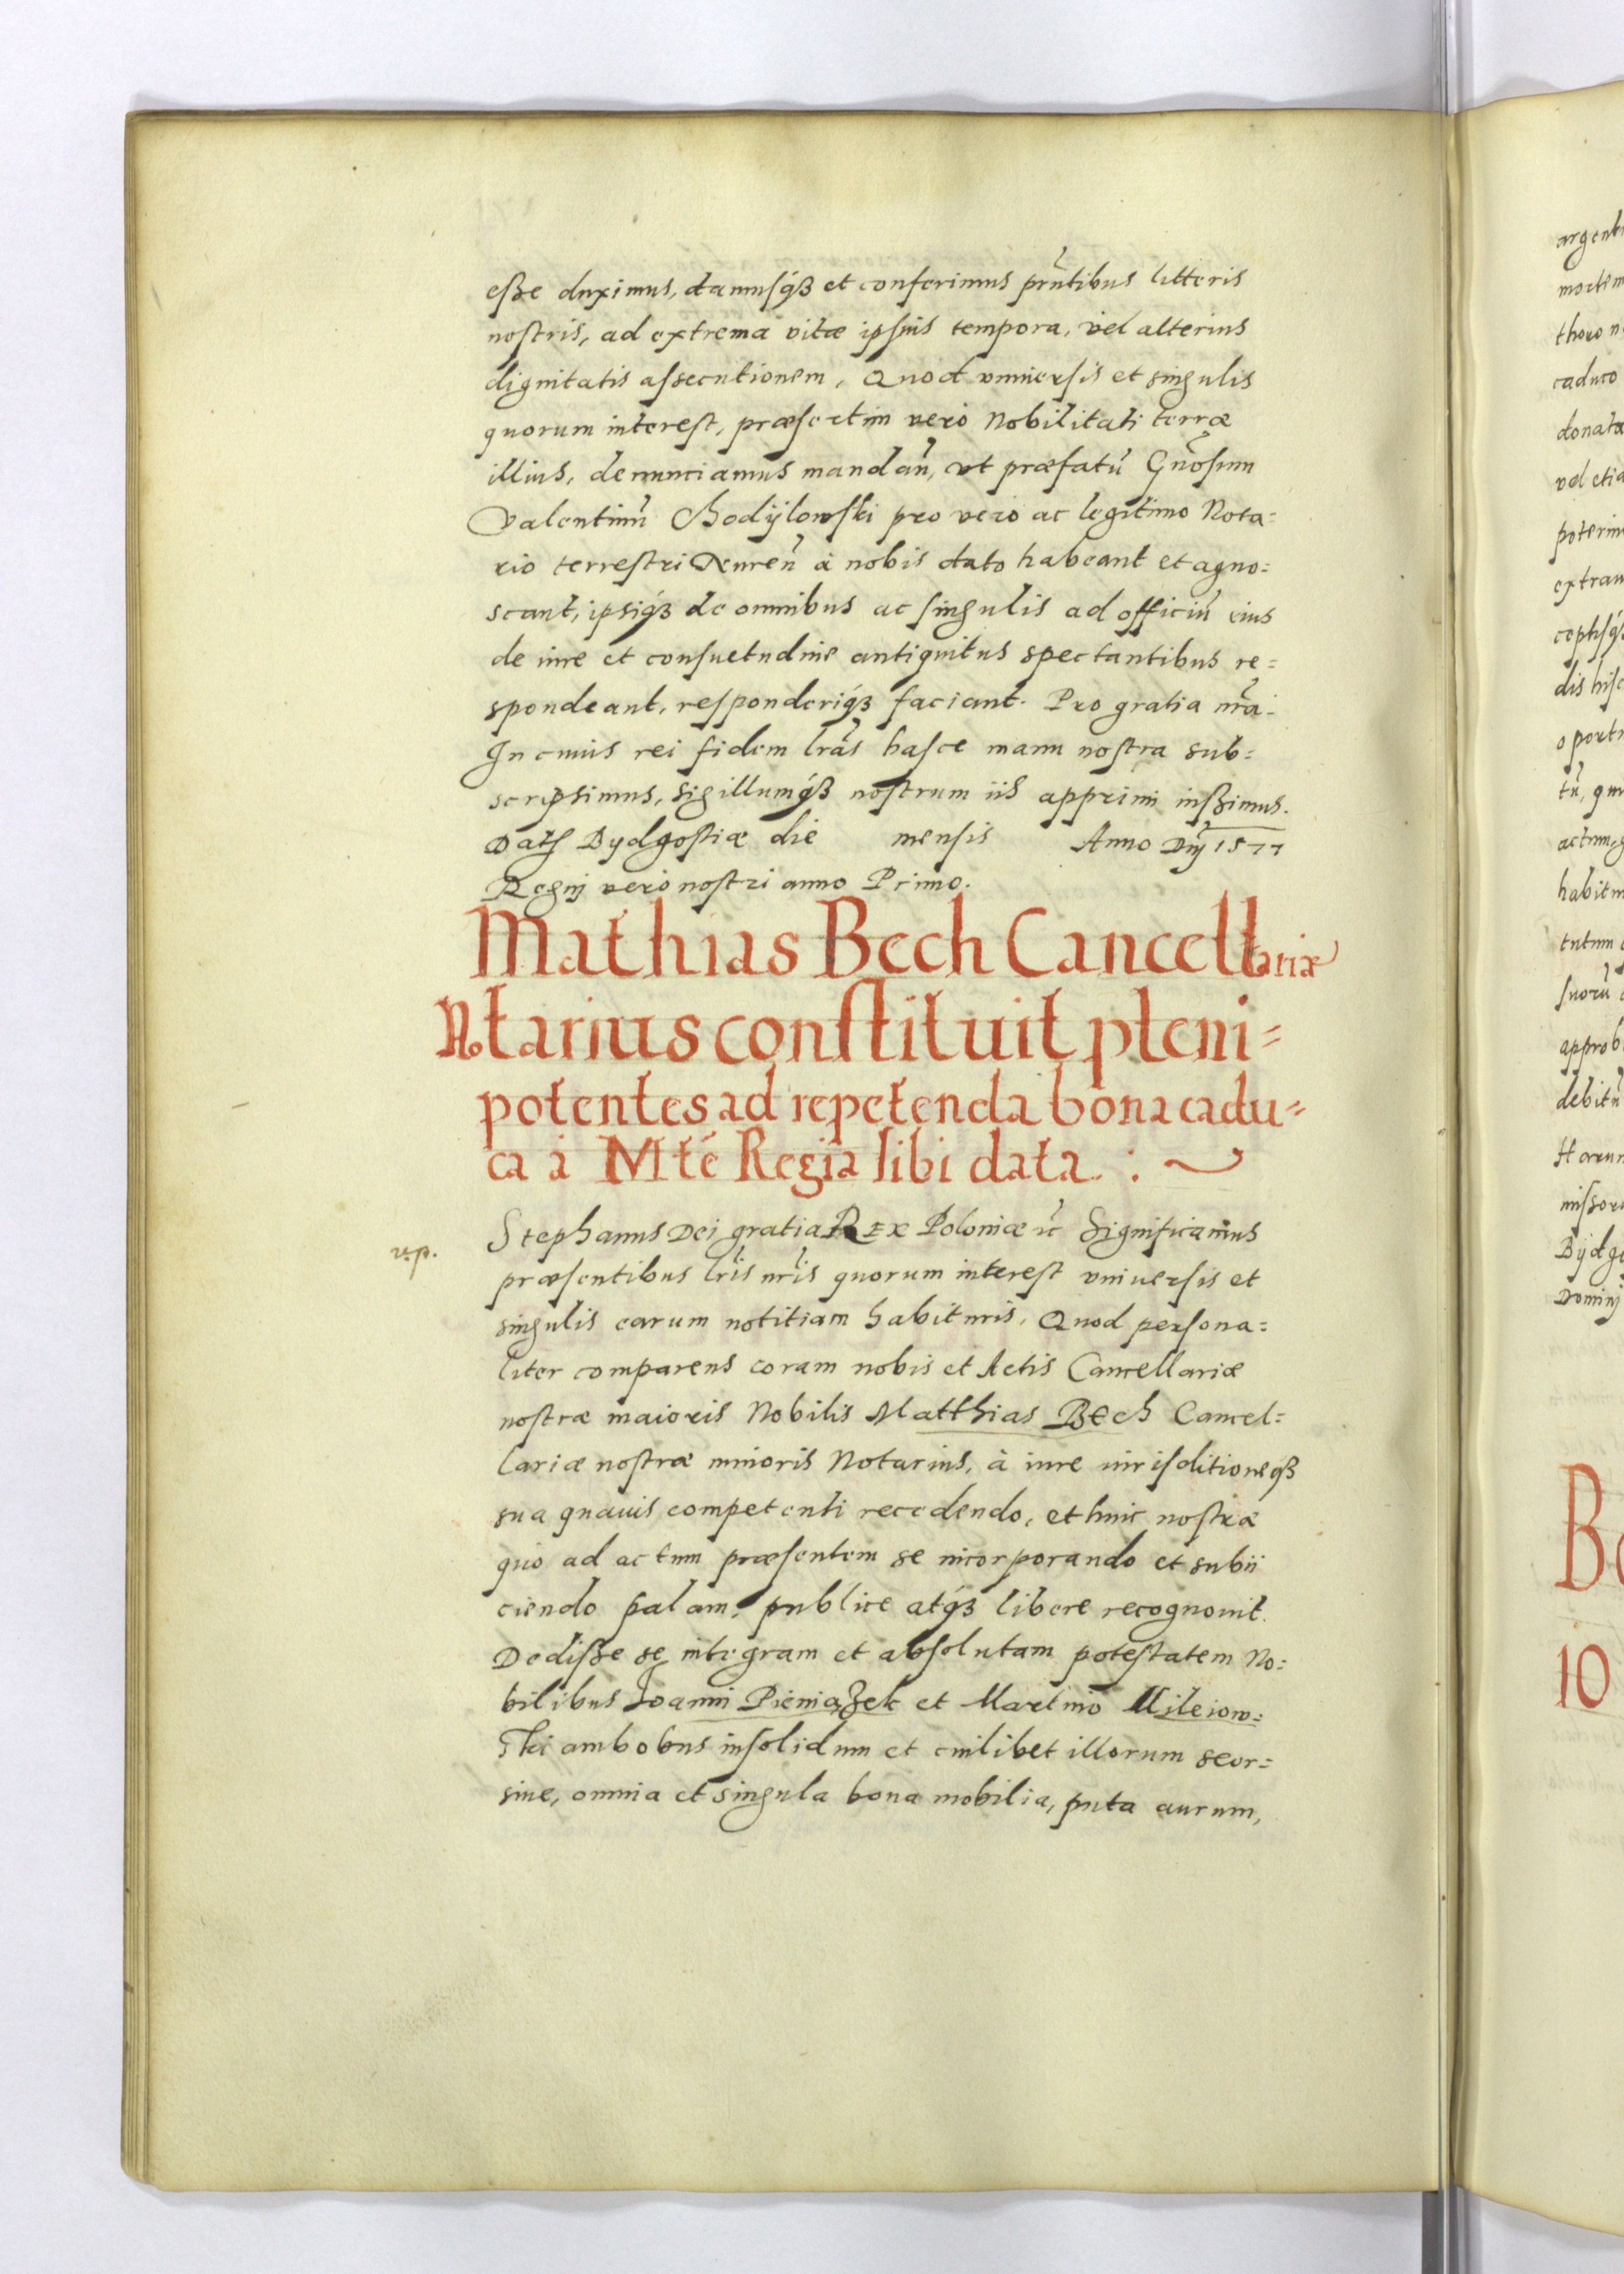 eſſe duximus, damuſq́ꝫ et conferimus pñtibus litteris
noſtris, ad extrema vitæ ipſius tempora, vel alterius
dignitatis aſsecutionem, Quod vniuerſis et singulis
quorum intereſt, præſertim vero Nobilitati terræ
illius, denunciamus mandañ, vt præfatũ Gñoſum
Valentinũ Chodÿlowſki pro vero ac legitimo Nota=
rio terreſtri à nobis dato habeant et agno=
scant, ipsiq́ꝫ de omnibus ac ſingulis ad officiũ eius
de iure et conſuetudine antiquitus spectantibus re=
spondeant, reſponderiq́ꝫ faciant. Pro gratia nr̃a.
In cuius rei fidem lrãs haſce manu noſtra sub=
scripsimus, sigillumq́ꝫ noſtrum iis apprimi iuſſimus.
Datꝭ Bydgoſtiæ die mensis Anno Dñj 1577
Regnj vero noſtri anno Primo.
Mathias Bech Cancellariæ
Notarius conſtituit pleni=
potentes ad repetenda bona cadu=
ca à Mtẽ Regia ſibi data.
Stephanus Dei gratia REX Poloniæ ꝛc̃ Significamus
præſentibus lrĩs nrĩs quorum intereſt vniuerſis et
singulis earum notitiam habituris, Quod perſona=
liter comparens coram nobis et Actis Cancellariæ
noſtræ maioris Nobilis Matthias Bech Cancel=
lariæ noſtræ minoris Notarius, à iure iurisditioneqꝫ
sua quauis competenti recedendo, et huic noſtræ
quo ad actum præſentem se incorporando et subii
ciendo palam, publice atq́ꝫ libere recognouit.
Dediſſe se integram et abſolutam poteſtatem No=
bilibus Joanni Pieniążek et Martino Mileiow=
ſki ambobus inſolidum et cuilibet illorum seor=
sine, omnia et singula bona mobilia, puta aurum,
argent
mortem
thoro n
caduco
donata
vel etia
poterin
extran
ceptiſq́
dis hiſc
oport
tũ, qu
actum,
habitu
tutum
ſuorũ
approb
debitũ
Harum
miſſoru
Bÿdg
Dominj
B
10